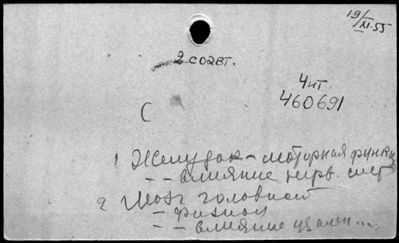 19/XI.55
2 соавт.
4ит
460691
С
1 Желудок - моторная функц
- - влияние нерв. сист
2 Мозг головной
- физиол
- - влияние удален...